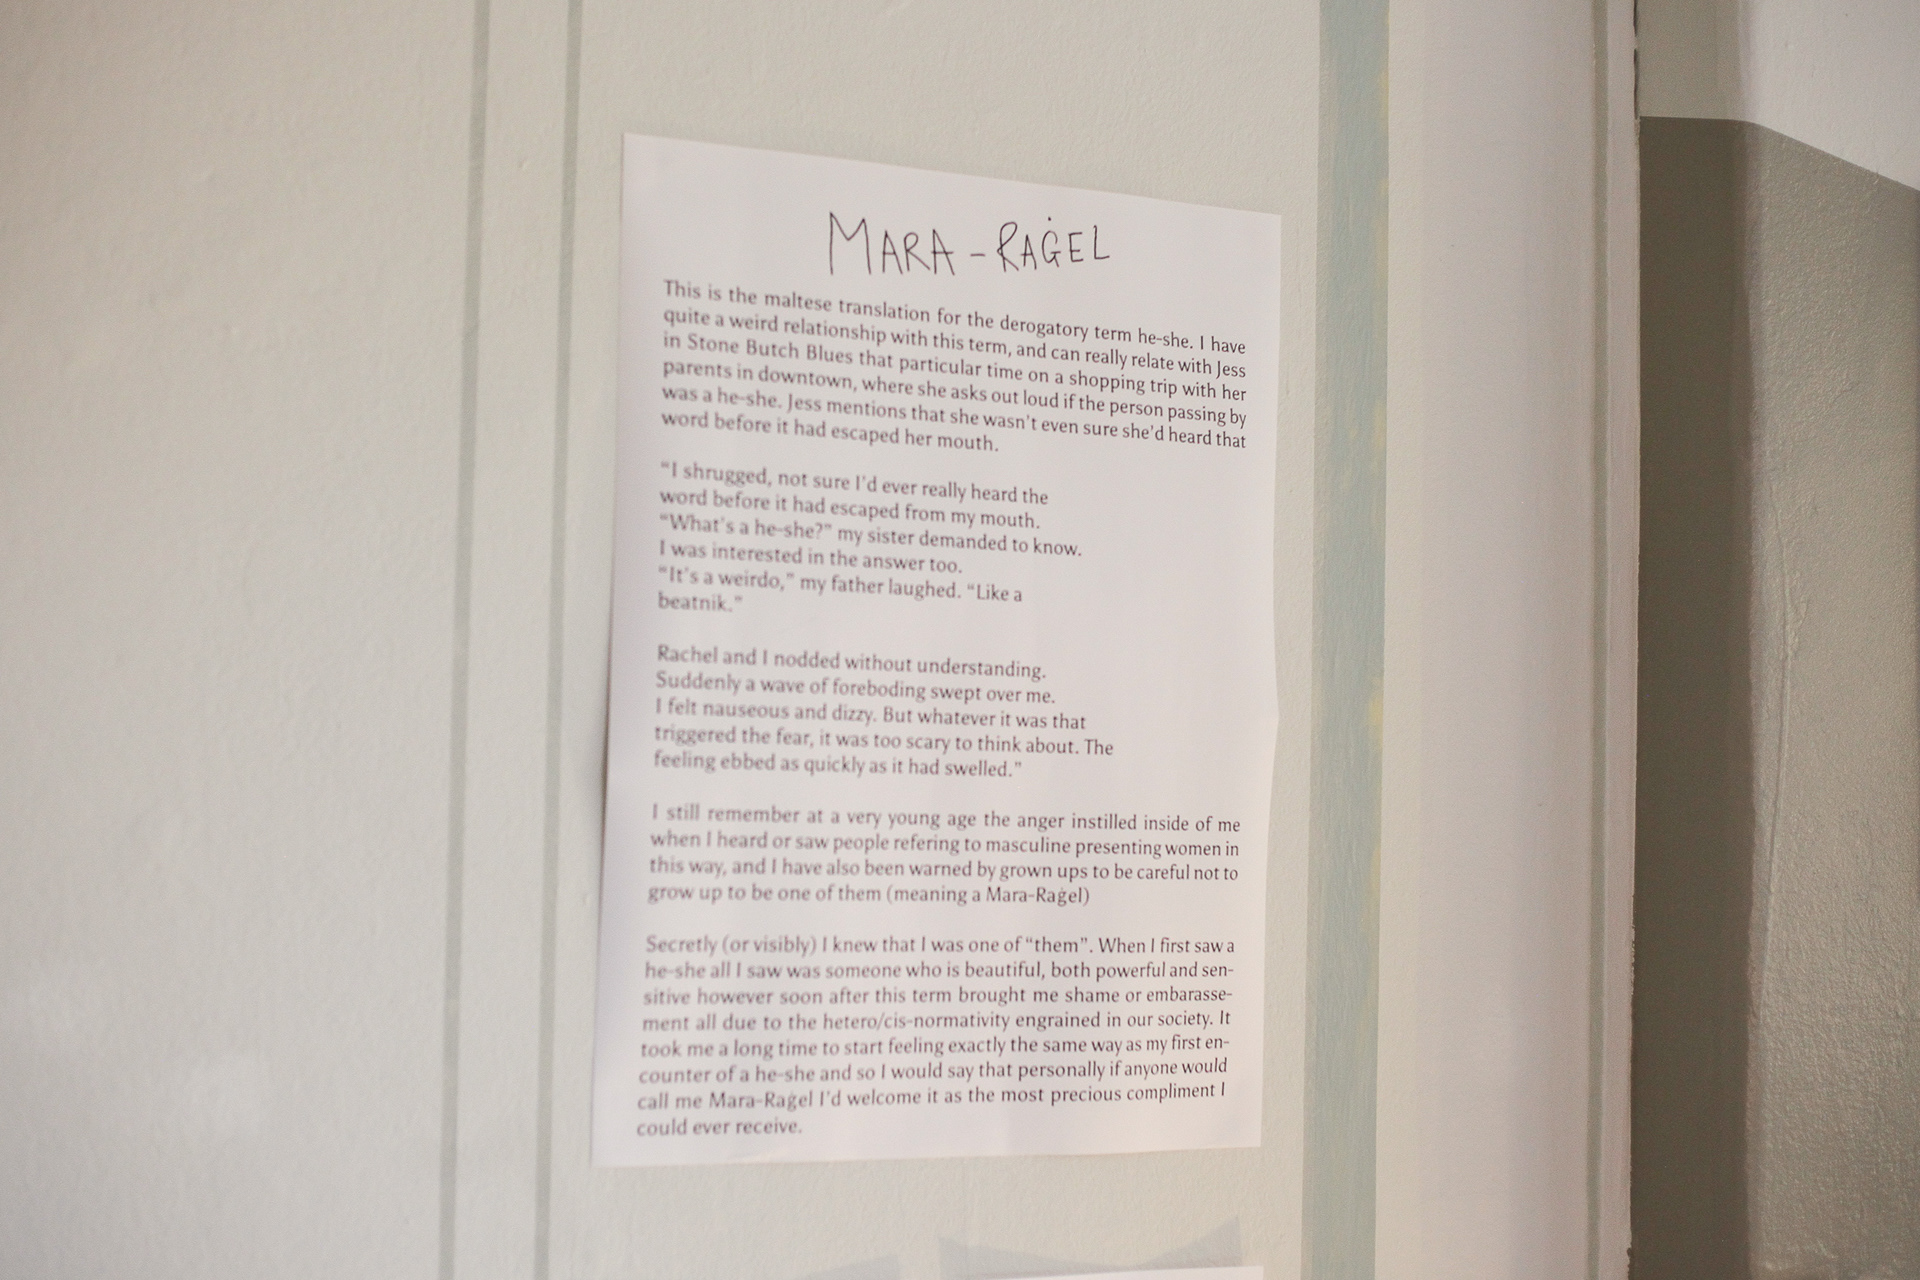 MARA - RAĠEL
This is the maltese translation for the derogatory term he-she. I have
quite a weird relationship with this term, and can really relate with Jess
in Stone Butch Blues that particular time on a shopping trip with her
parents in downtown, where she asks out loud if the person passing by
was a he-she. Jess mentions that she wasn't even sure she'd heard that
word before it had escaped her mouth.
“I shrugged, not sure I'd ever really heard the
word before it had escaped from my mouth.
“What's a he-she?” my sister demanded to know.
I was interested in the answer too.
“It's a weirdo,” my father laughed. “Like a
beatnik.”
Rachel and I nodded without understanding.
Suddenly a wave of foreboding swept over me.
I felt nauseous and dizzy. But whatever it was that
triggered the fear, it was too scary to think about. The
feeling ebbed as quickly as it had swelled.”
I still remember at a very young age the anger instilled inside of me
when I heard or saw people refering to masculine presenting women in
this way, and I have also been warned by grown ups to be careful not to
grow up to be one of them (meaning a Mara-Raġel)
Secretly (or visibly) I knew that I was one of “them”. When I first saw a
he-she all I saw was someone who is beautiful, both powerful and sen-
sitive however soon after this term brought me shame or embarasse-
ment all due to the hetero/cis-normativity engrained in our society. It
took me a long time to start feeling exactly the same way as my first en-
counter of a he-she and so I would say that personally if anyone would
call me Mara-Raġel I'd welcome it as the most precious compliment I
could ever receive.